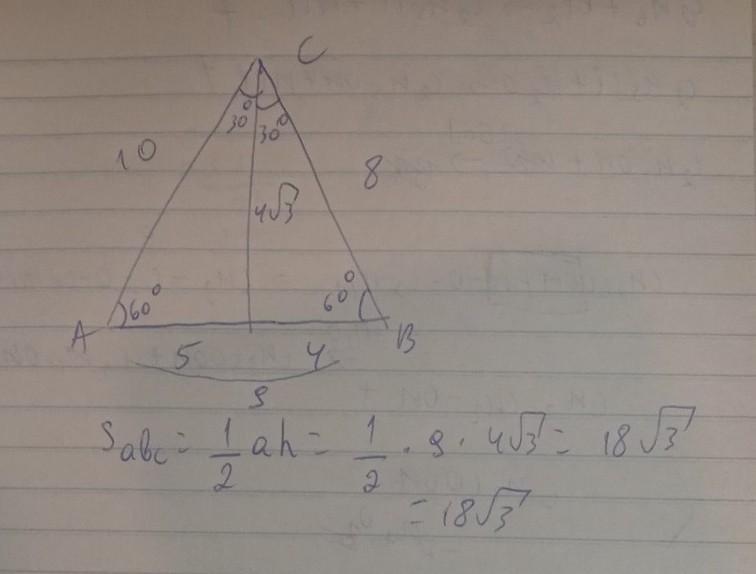 C
30° 30°
10
8
4√3
60° 60°
A B
5 4
9
Sabc = 1/2 ah = 1/2 · 9 · 4√3 = 18√3
= 18√3